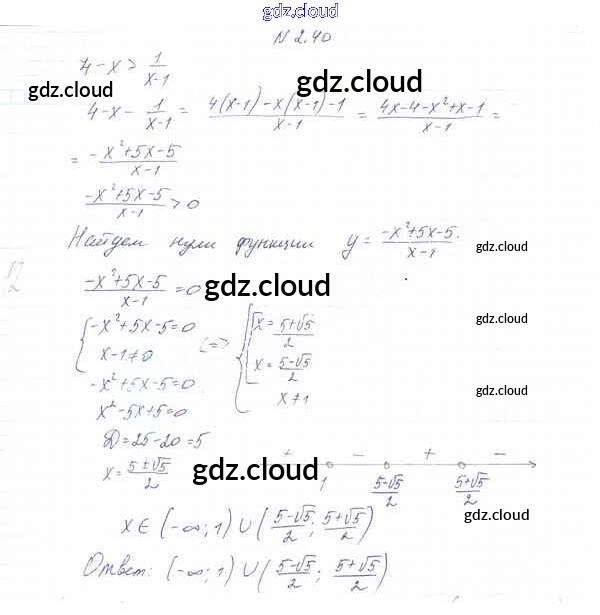 gdz.cloud
N 2.40
4-x > 1/(x-1)
gdz.cloud gdz.cloud
4-x - 1/(x-1) = (4(x-1)-x(x-1)-1)/(x-1) = (4x-4-x²+x-1)/(x-1) =
= (-x²+5x-5)/(x-1)
(-x²+5x-5)/(x-1) > 0
Найдем нули функции y = (-x²+5x-5)/(x-1). gdz.cloud
(-x²+5x-5)/(x-1) = 0 gdz.cloud
{ -x²+5x-5=0 <=> { [ x = (5+√5)/2 gdz.cloud
x-1≠0 x = (5-√5)/2
-x²+5x-5=0 x≠1 gdz.cloud
x²-5x+5=0
D=25-20=5
x = (5±√5)/2 gdz.cloud + - + -
1 (5-√5)/2 (5+√5)/2
gdz.cloud
x∈(-∞;1)∪((5-√5)/2; (5+√5)/2)
Ответ: (-∞;1)∪((5-√5)/2; (5+√5)/2)